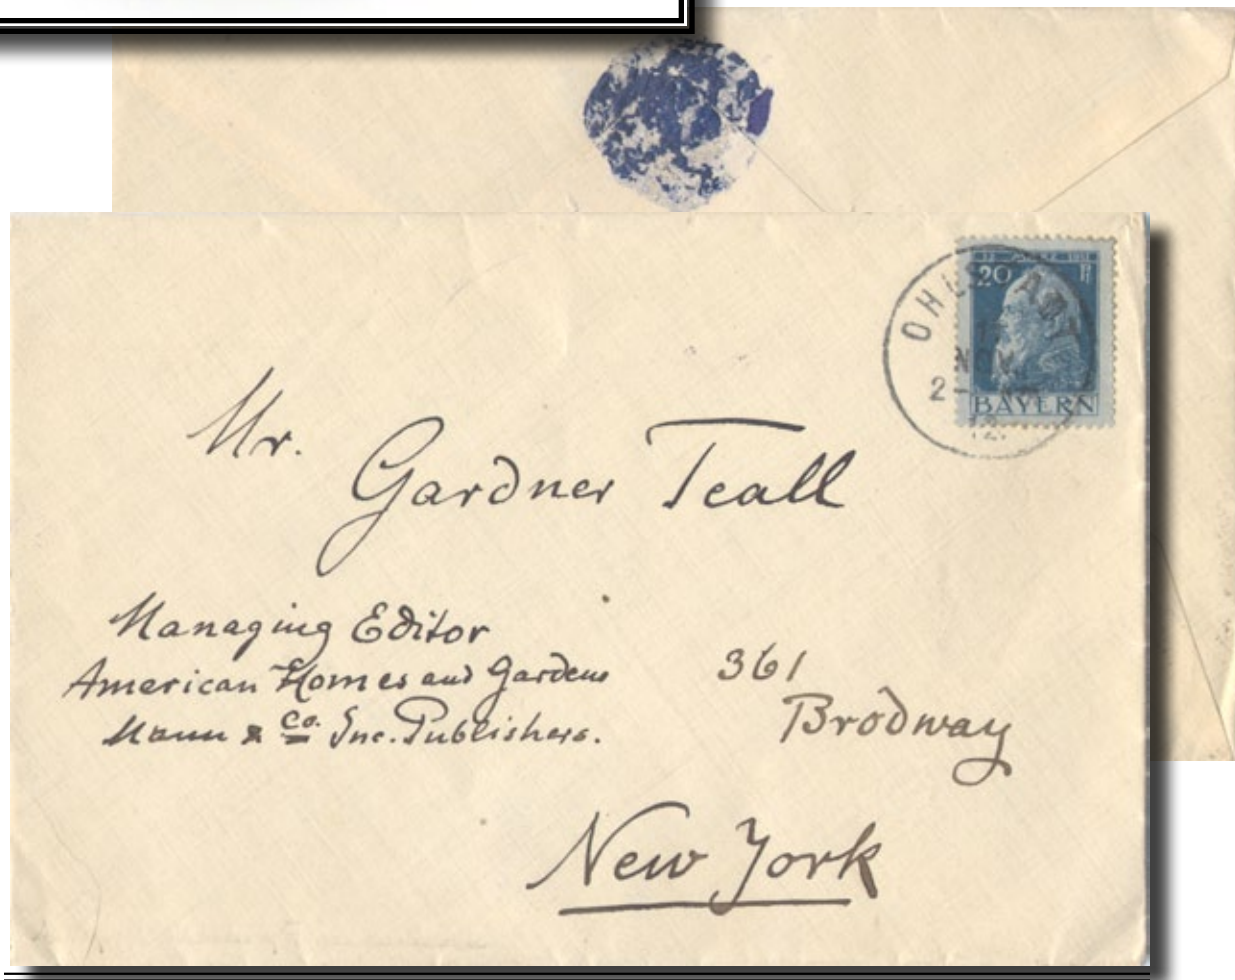 12 MÄRZ 1911
20 Pf
OHLSTADT
NOV.
2-
12.
BAYERN
Mr.
Gardner Teall
Managing Editor
American Homes and Gardens
Munn & Co. Inc. Publishers.
361
Brodway
New York